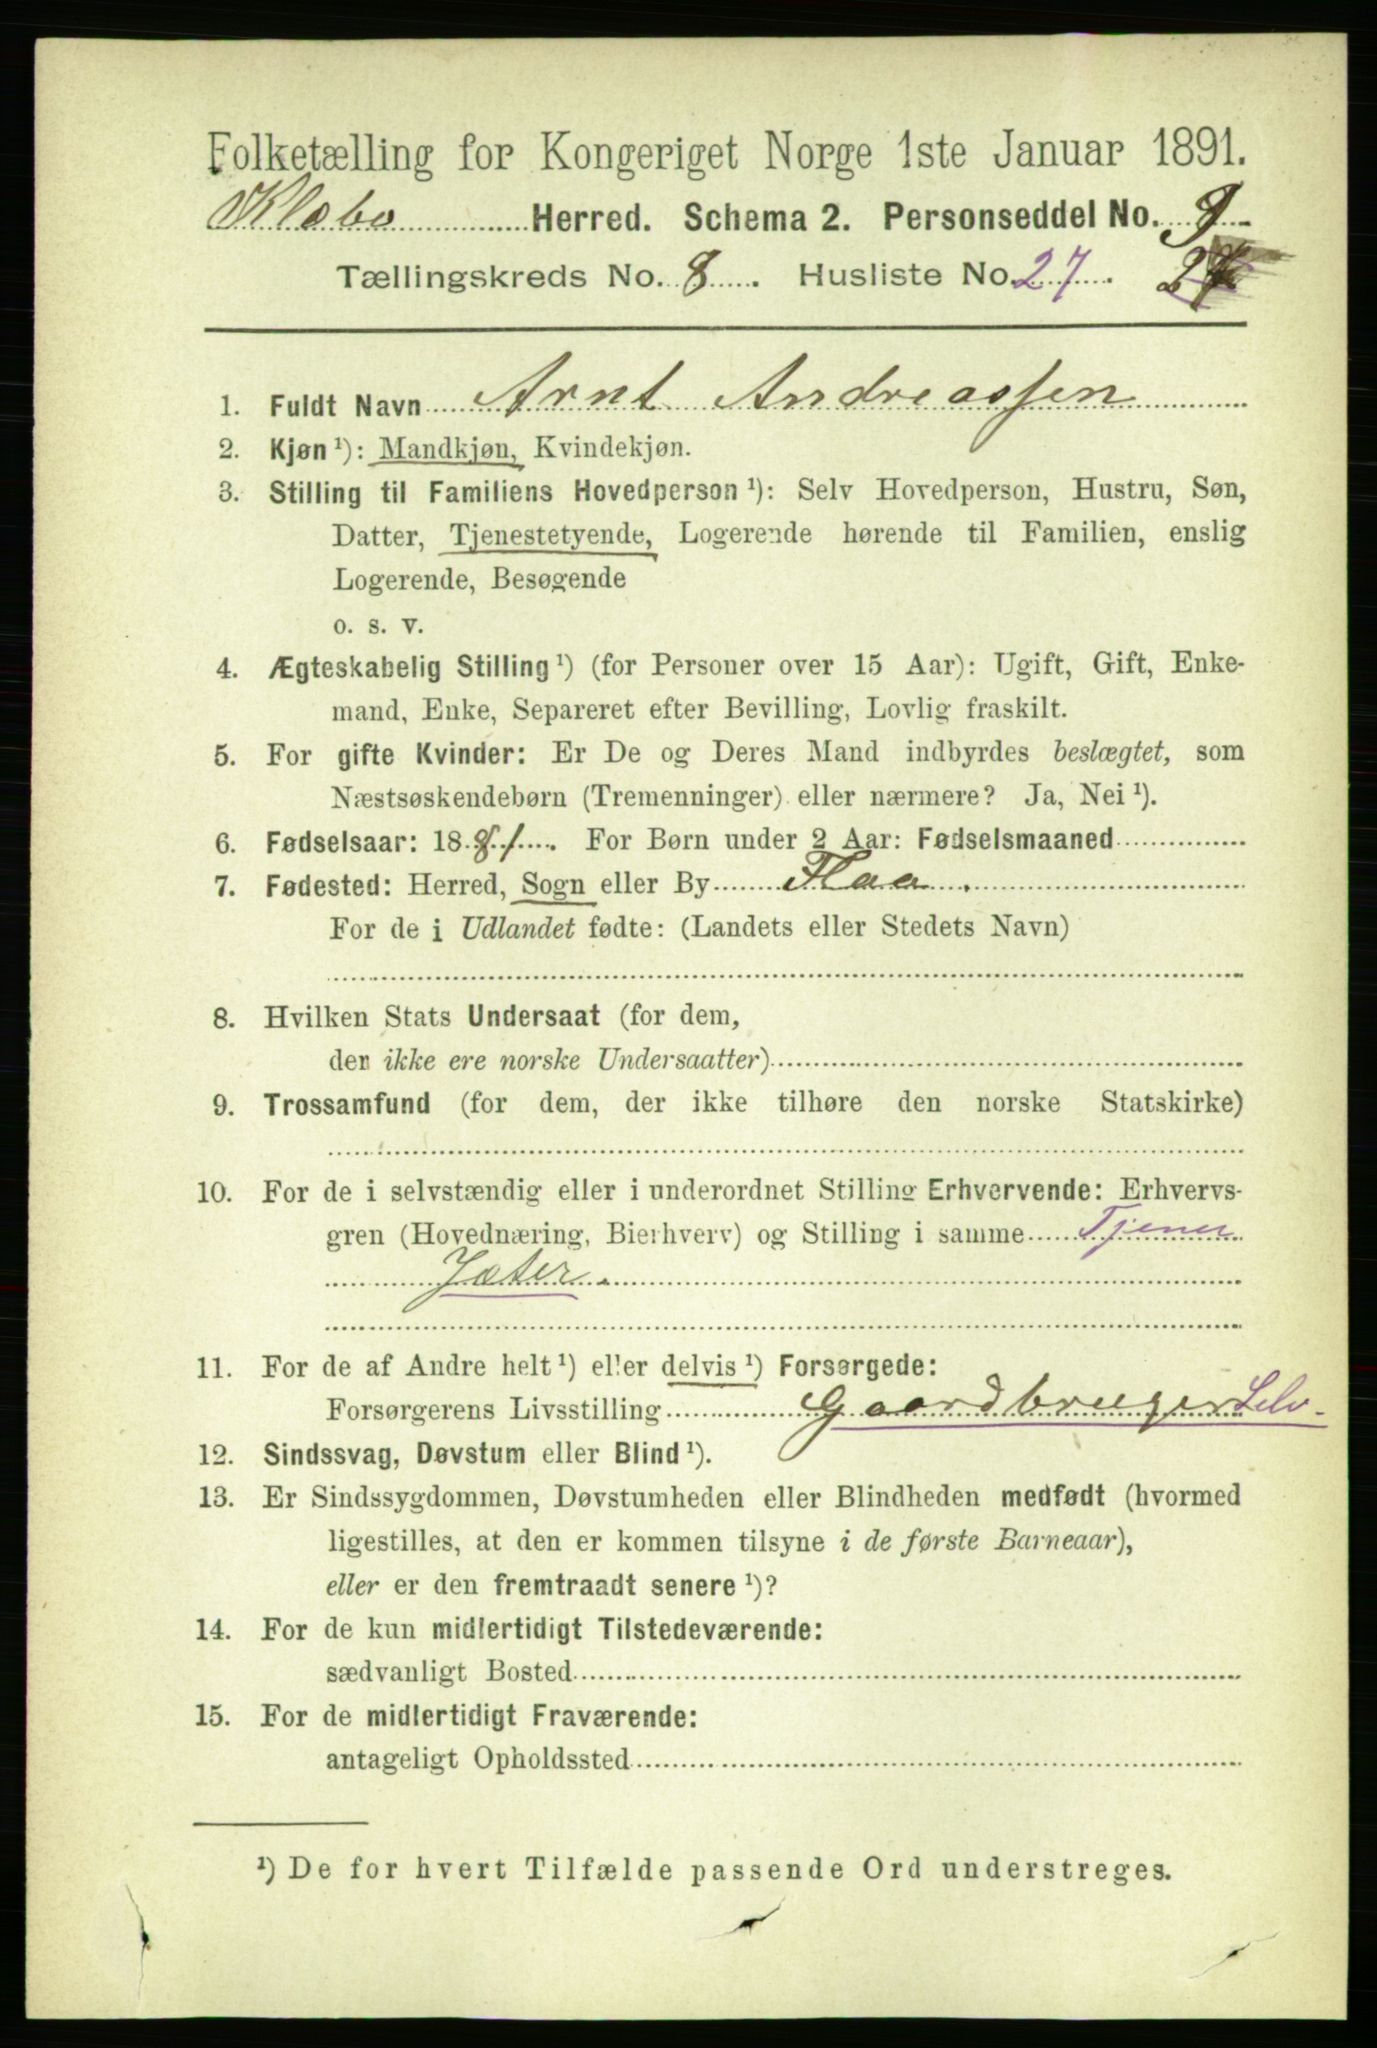 Folketælling for Kongeriget Norge 1ste Januar 1891.
Klæbo Herred. Schema 2. Personseddel No. 9
Tællingskreds No. 8. Husliste No. 27. 27
1. Fuldt Navn Arnt Andreassen
2. Kjøn ¹): Mandkjøn, Kvindekjøn.
3. Stilling til Familiens Hovedperson ¹): Selv Hovedperson, Hustru, Søn,
Datter, Tjenestetyende, Logerende hørende til Familien, enslig
Logerende, Besøgende
o. s. v.
4. Ægteskabelig Stilling ¹) (for Personer over 15 Aar): Ugift, Gift, Enke-
mand, Enke, Separeret efter Bevilling, Lovlig fraskilt.
5. For gifte Kvinder: Er De og Deres Mand indbyrdes beslægtet, som
Næstsøskendebørn (Tremenninger) eller nærmere? Ja, Nei ¹).
6. Fødselsaar: 1881. For Børn under 2 Aar: Fødselsmaaned
7. Fødested: Herred, Sogn eller By Flaa.
For de i Udlandet fødte: (Landets eller Stedets Navn)
8. Hvilken Stats Undersaat (for dem,
der ikke ere norske Undersaatter)
9. Trossamfund (for dem, der ikke tilhøre den norske Statskirke)
10. For de i selvstændig eller i underordnet Stilling Erhvervende: Erhvervs-
gren (Hovednæring, Bierhverv) og Stilling i samme Tjener
Jæter.
11. For de af Andre helt ¹) eller delvis ¹) Forsørgede:
Forsørgerens Livsstilling Gaardbruger Selv.
12. Sindssvag, Døvstum eller Blind ¹).
13. Er Sindssygdommen, Døvstumheden eller Blindheden medfødt (hvormed
ligestilles, at den er kommen tilsyne i de første Barneaar),
eller er den fremtraadt senere ¹)?
14. For de kun midlertidigt Tilstedeværende:
sædvanligt Bosted
15. For de midlertidigt Fraværende:
antageligt Opholdssted
¹) De for hvert Tilfælde passende Ord understreges.